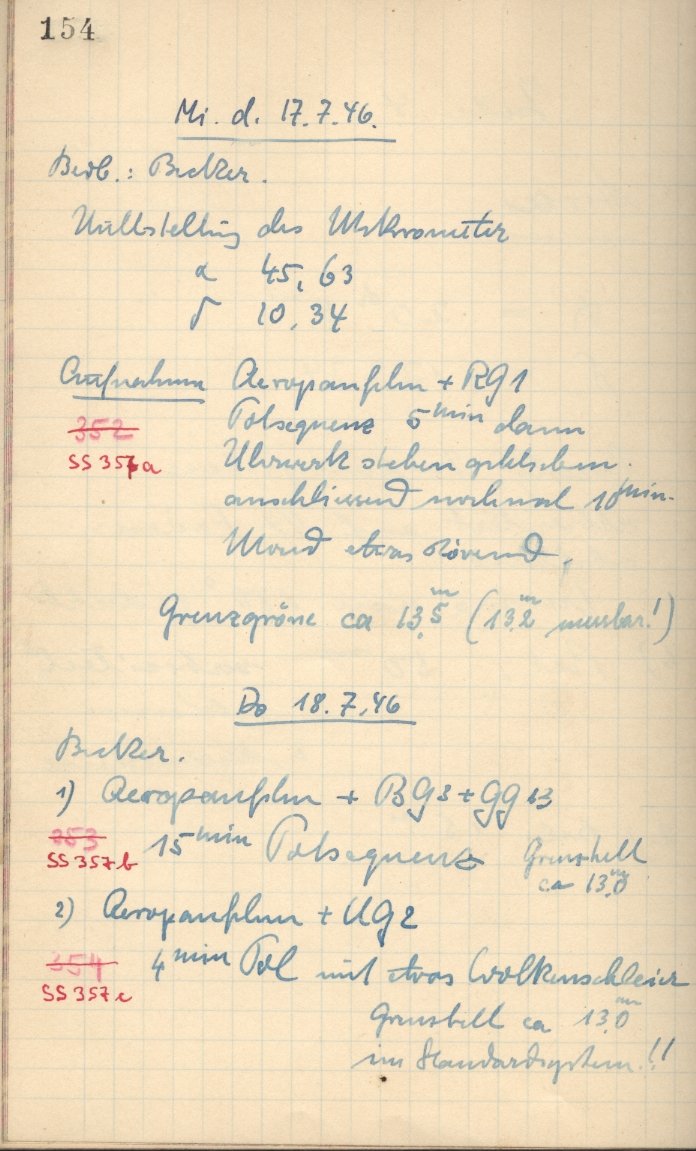 154
Mi. d. 17.7.46.
Beob.: Becker.
Nullstellung des Mikrometer
α 45,63
δ 10,34
Aufnahme Aeropanfilm + RG1
352 Polsequenz 5 min dann
SS 357a Uhrwerk stehen geblieben.
anschliessend nochmal 10 min.
Mond etwas störend,
Grenzgrösse ca 13,5 m (13,2 m messbar!)
Do 18.7.46
Becker.
1) Aeropanfilm + BG3 + GG13
353 15 min Polsequenz Grenzhell
SS 357b ca 13,0 m
2) Aeropanfilm + UG2
354 4 min Pol mit etwas Wolkenschleier
SS 357c Grenzhell ca 13,0 m
im Standardsystem!!